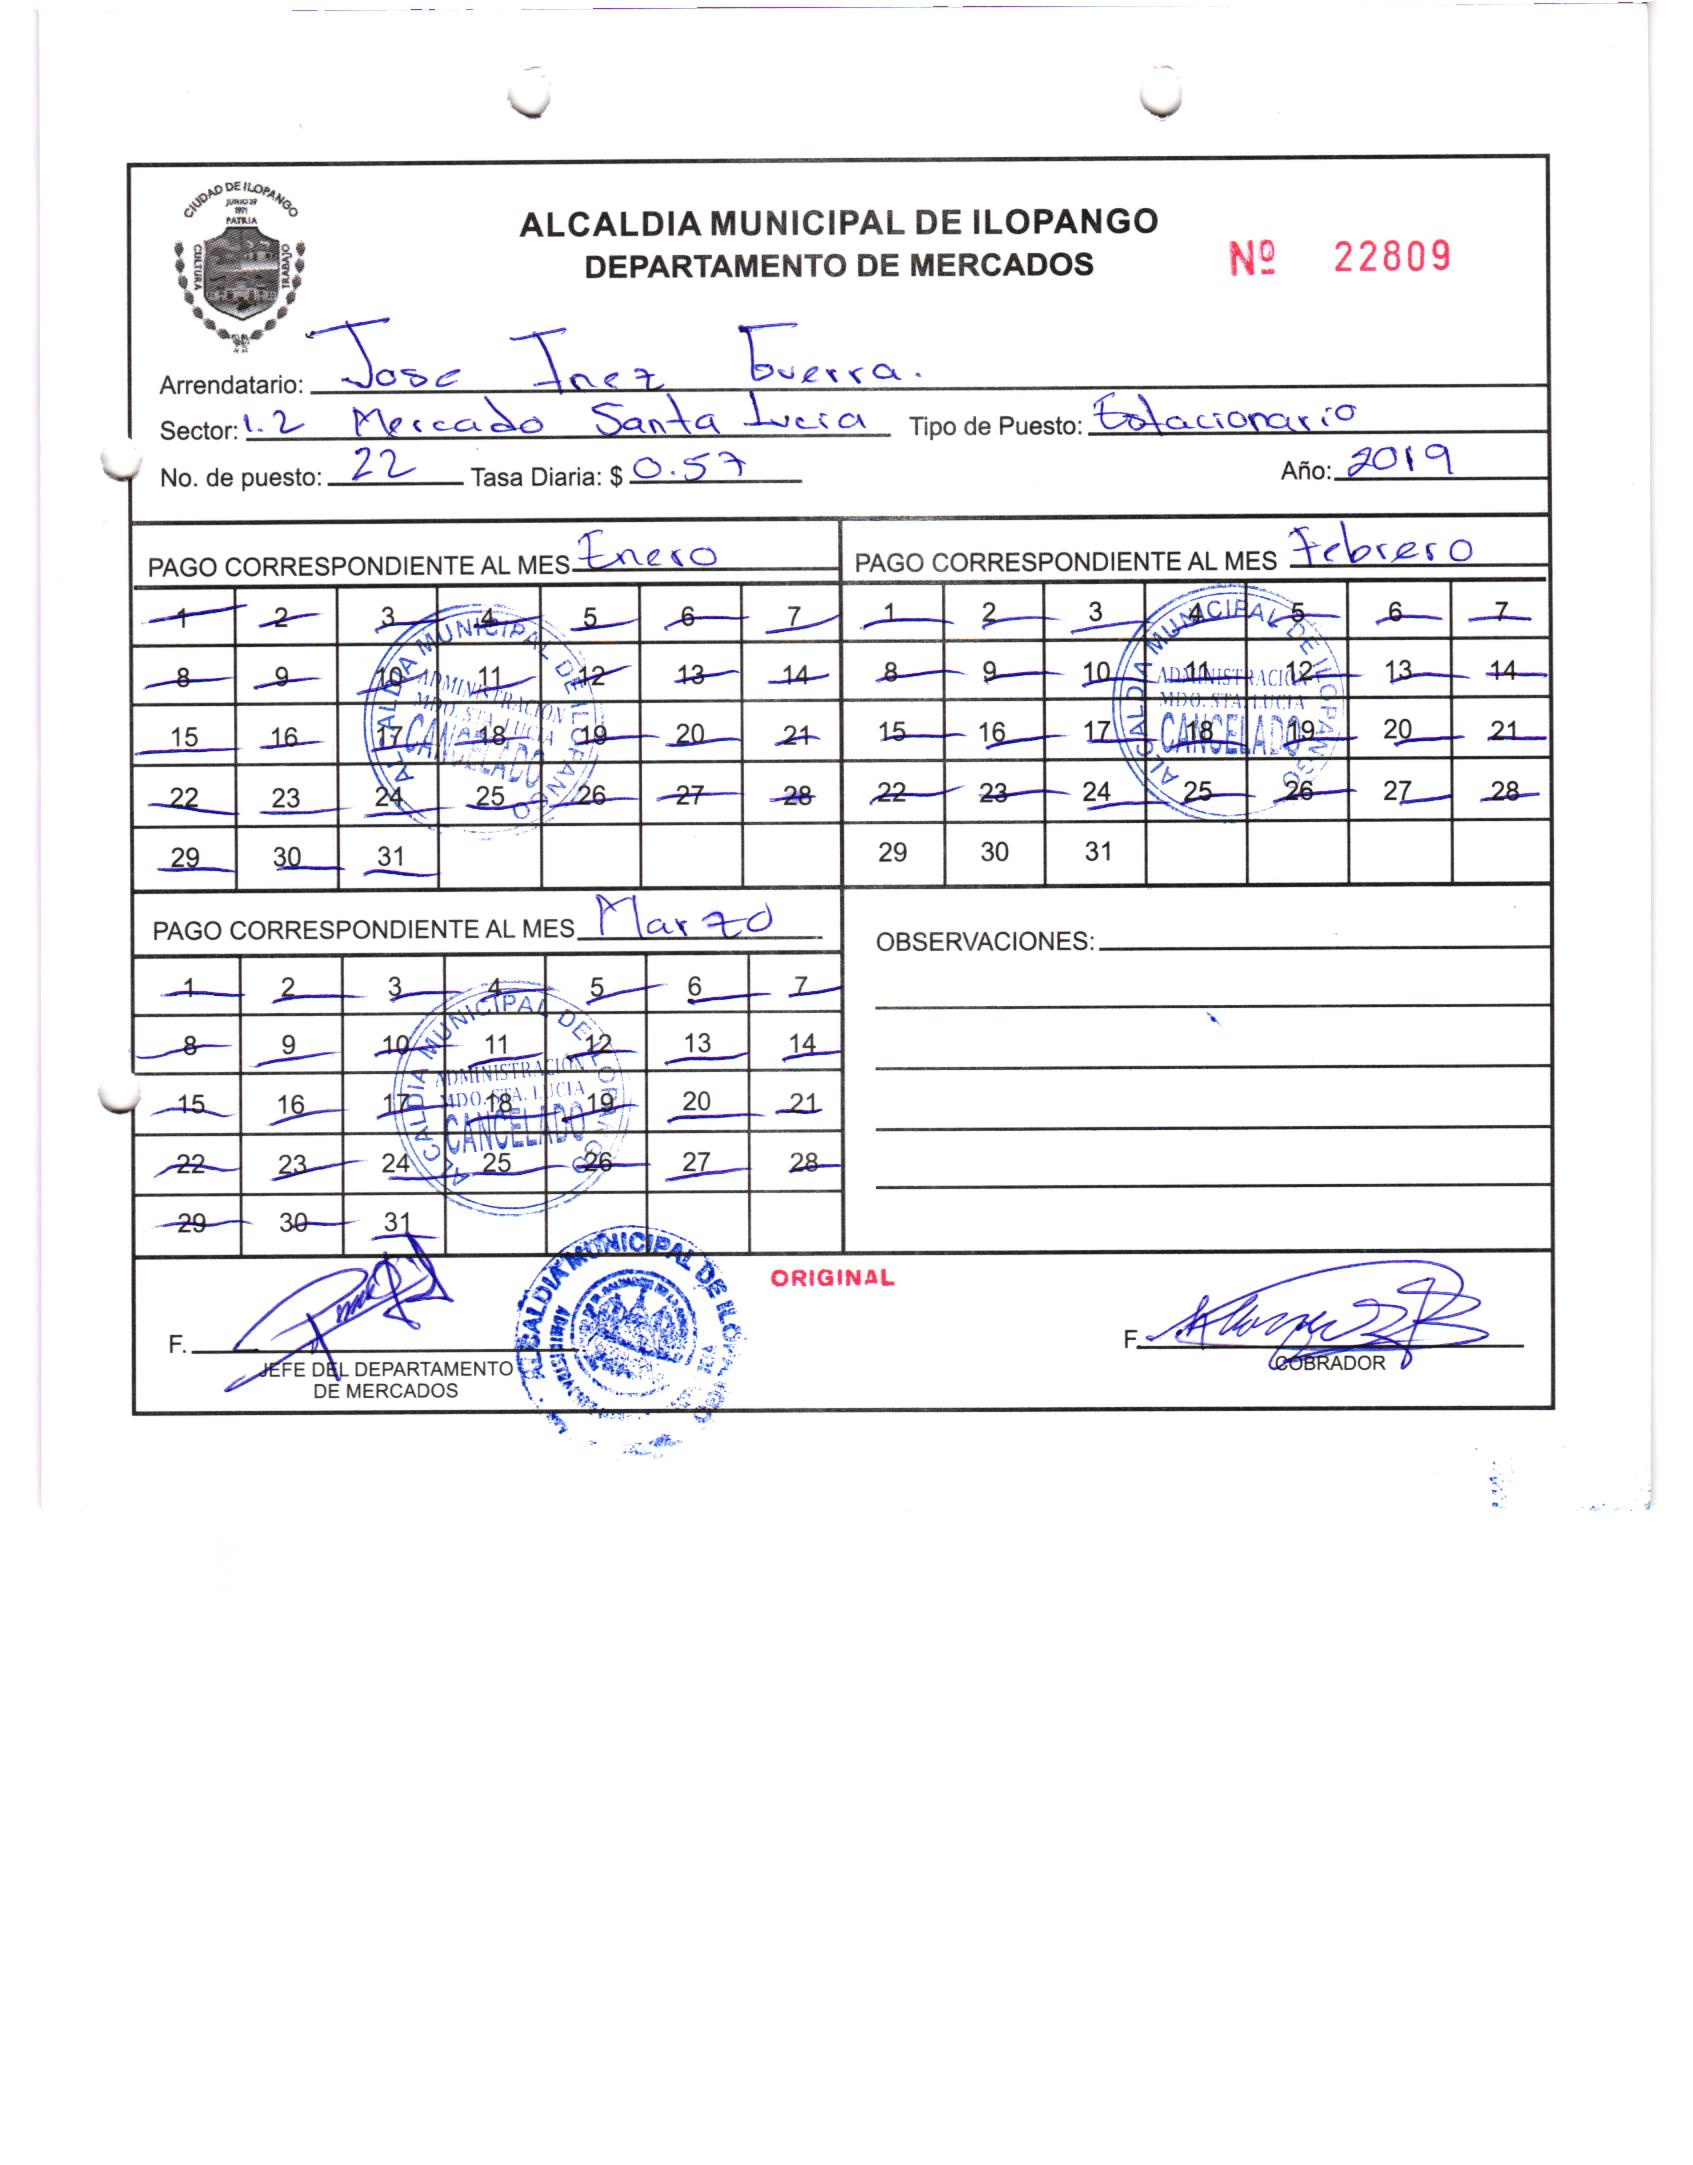 CIUDAD DE ILOPANGO
JUNIO 29
1971
PATRIA
CULTURA
TRABAJO
ALCALDIA MUNICIPAL DE ILOPANGO
DEPARTAMENTO DE MERCADOS
Nº 22809
Arrendatario: Jose Inez Guerra.
Sector: 1.2 Mercado Santa Lucia Tipo de Puesto: Estacionario
No. de puesto: 22 Tasa Diaria: $ 0.57 Año: 2019
PAGO CORRESPONDIENTE AL MES Enero
1 2 3 4 5 6 7
8 9 10 11 12 13 14
15 16 17 18 19 20 21
22 23 24 25 26 27 28
29 30 31
ALCALDIA MUNICIPAL DE ILOPANGO
ADMINISTRACION
MDO. STA. LUCIA
CANCELADO
PAGO CORRESPONDIENTE AL MES Febrero
1 2 3 4 5 6 7
8 9 10 11 12 13 14
15 16 17 18 19 20 21
22 23 24 25 26 27 28
29 30 31
ALCALDIA MUNICIPAL DE ILOPANGO
ADMINISTRACION
MDO. STA. LUCIA
CANCELADO
PAGO CORRESPONDIENTE AL MES Marzo
1 2 3 4 5 6 7
8 9 10 11 12 13 14
15 16 17 18 19 20 21
22 23 24 25 26 27 28
29 30 31
ALCALDIA MUNICIPAL DE ILOPANGO
ADMINISTRACION
MDO. STA. LUCIA
CANCELADO
OBSERVACIONES:
ORIGINAL
F.
JEFE DEL DEPARTAMENTO
DE MERCADOS
ALCALDIA MUNICIPAL DE ILOPANGO
F.
COBRADOR